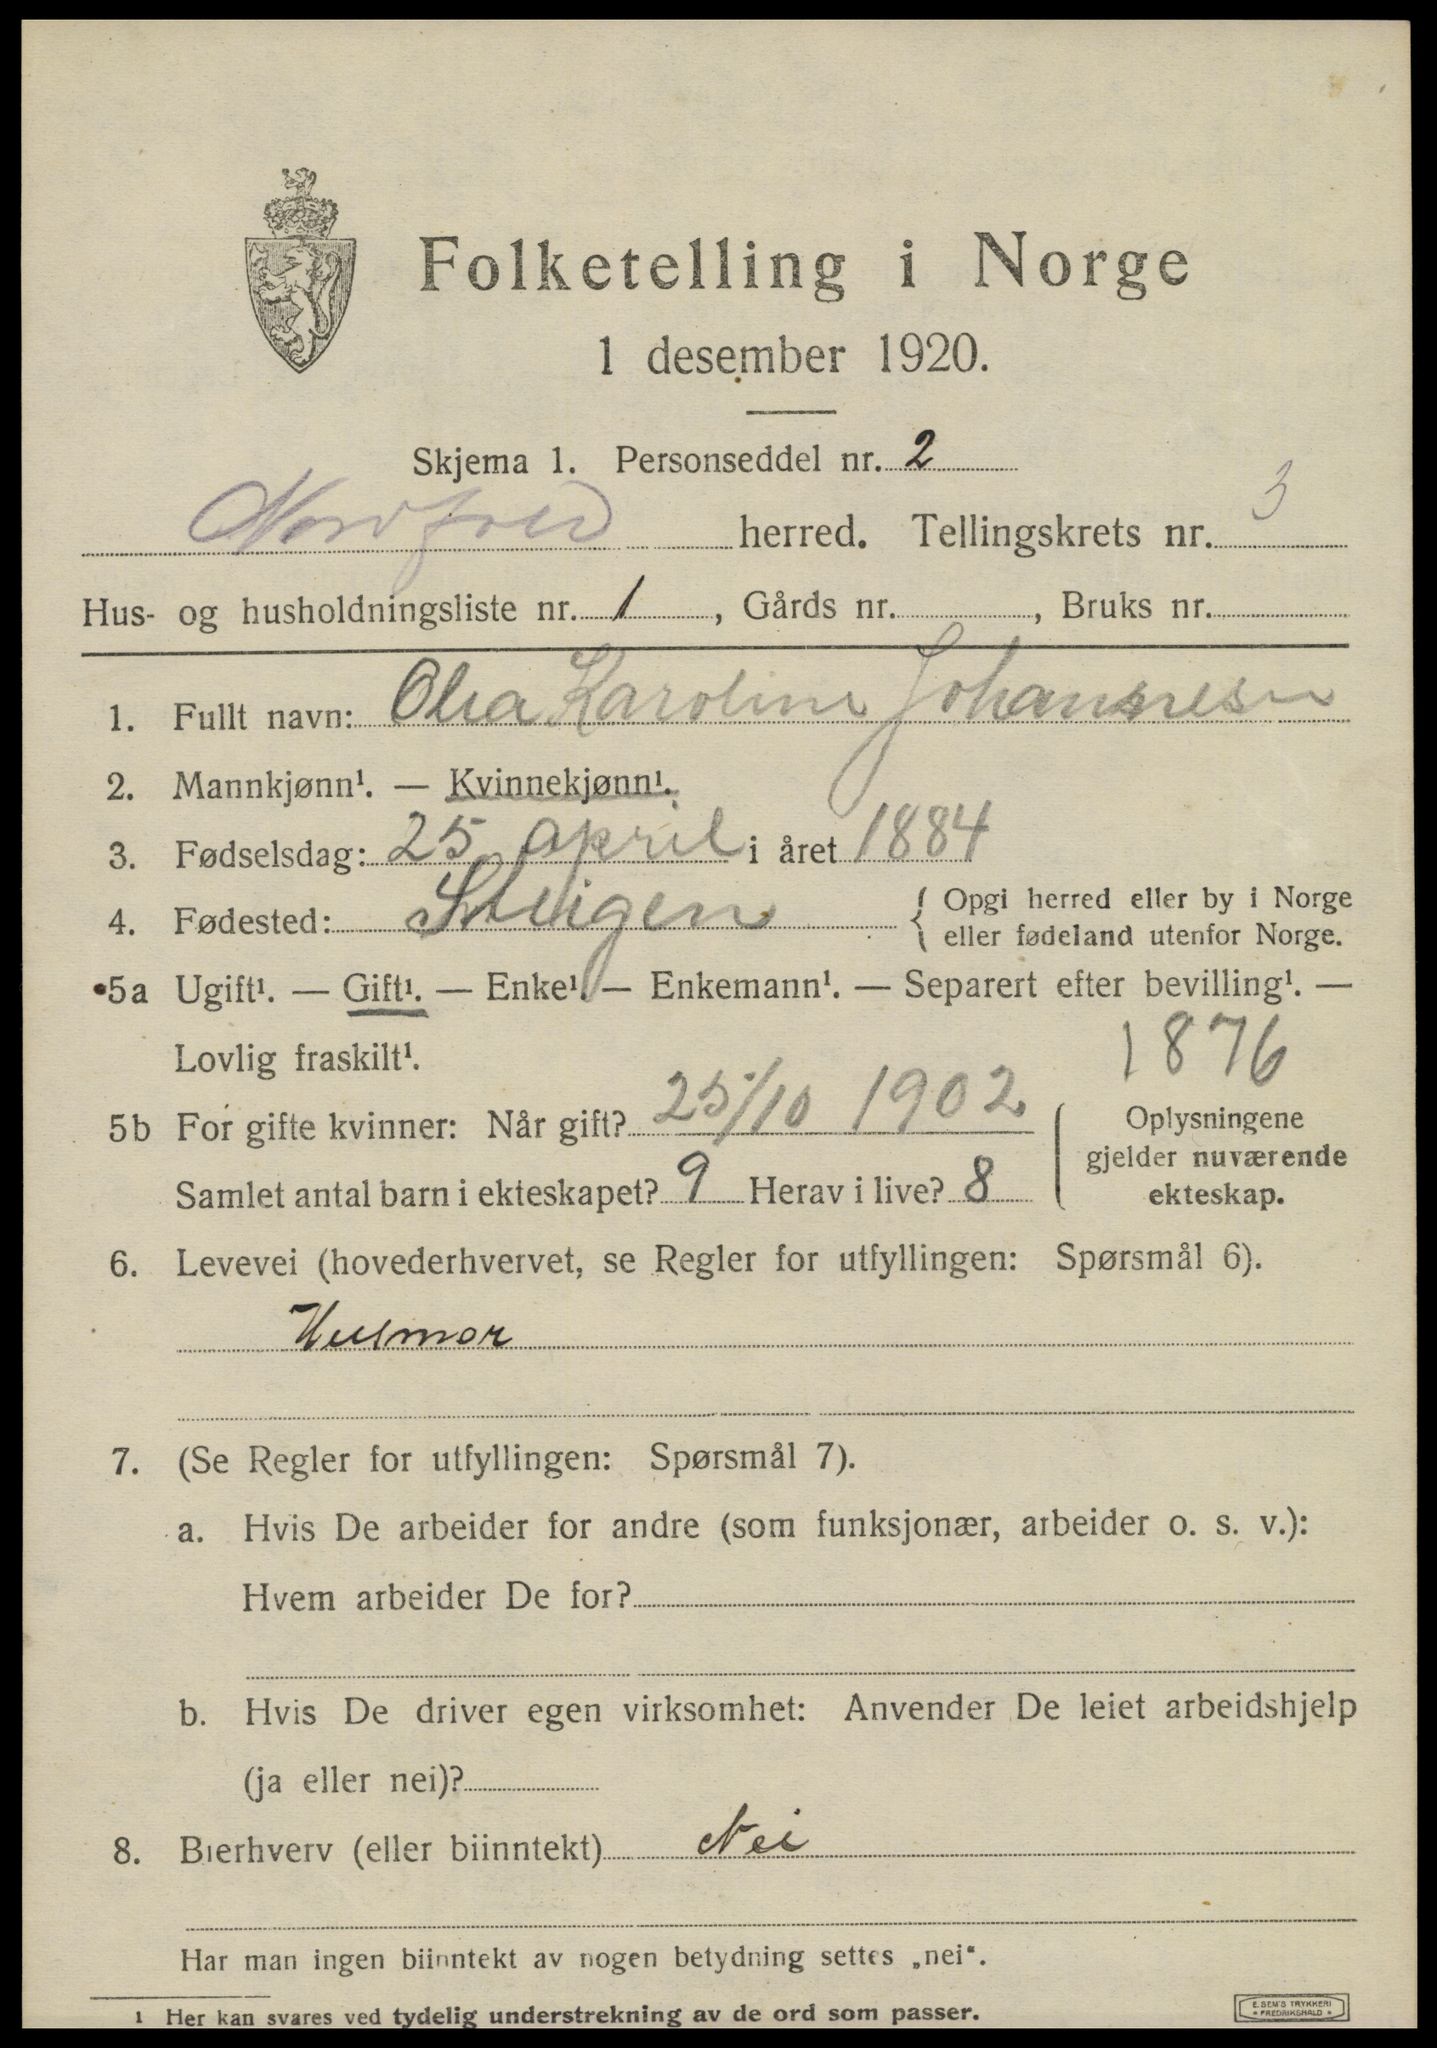 Folketelling i Norge
1 desember 1920.
Skjema 1. Personseddel nr. 2
Nordfold herred. Tellingskrets nr. 3
Hus- og husholdningsliste nr. 1, Gårds nr. , Bruks nr.
1. Fullt navn: Olea Karoline Johannesen
2. Mannkjønn¹. — Kvinnekjønn¹.
3. Fødselsdag: 25 april i året 1884
4. Fødested: Steigen { Opgi herred eller by i Norge
eller fødeland utenfor Norge.
5a Ugift¹. — Gift¹. — Enke¹. — Enkemann¹. — Separert efter bevilling¹. —
Lovlig fraskilt¹. 1876
5b For gifte kvinner: Når gift? 25/10 1902
Samlet antal barn i ekteskapet? 9 Herav i live? 8
Oplysningene
gjelder nuværende
ekteskap.
6. Levevei (hovederhvervet, se Regler for utfyllingen: Spørsmål 6).
Husmor
7. (Se Regler for utfyllingen: Spørsmål 7).
a. Hvis De arbeider for andre (som funksjonær, arbeider o. s. v.):
Hvem arbeider De for?
b. Hvis De driver egen virksomhet: Anvender De leiet arbeidshjelp
(ja eller nei)?
8. Bierhverv (eller biinntekt) Nei
Har man ingen biinntekt av nogen betydning settes „nei“.
1 Her kan svares ved tydelig understrekning av de ord som passer.
E. SEM'S TRYKKERI
• FREDRIKSHALD •